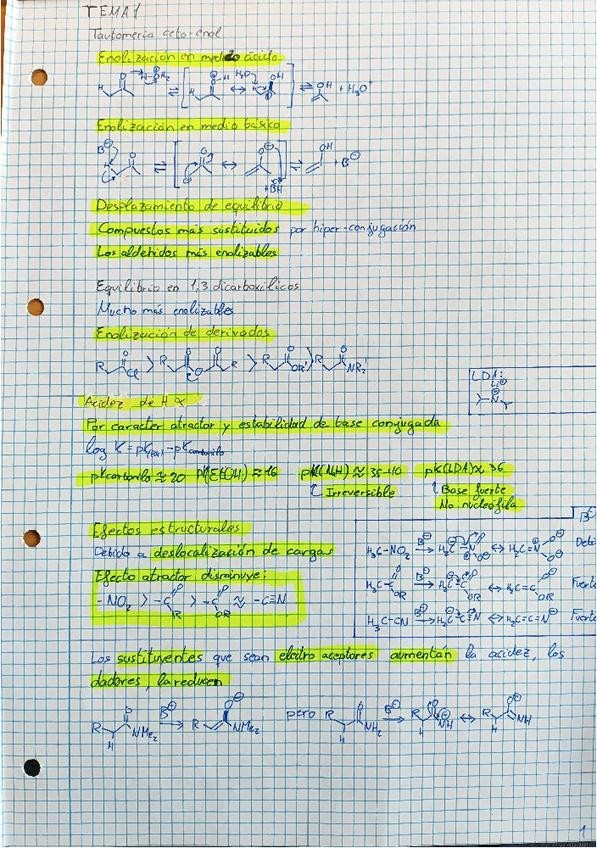 TEMA 1
Tautomería ceto-enol
Enolización en medio ácido
+ H₃O⁺
Enolización en medio básico
Desplazamiento de equilibrio
Compuestos más sustituidos por hiper-conjugación
Los aldehídos más enolizables
Equilibrio en 1,3 dicarboxílicos
Mucho más enolizables
Enolización de derivados
R Cl > R O R > R OR' > R NR₂'
LDA:
Acidez de H α
Por caracter atractor y estabilidad de base conjugada
log K = pK
pKcarbonilo ≈ 20 pK(EtOH) ≈ 16 pK(NH) ≈ 35-40 pK(LDA) ≈ 36
↑ Irreversible ↑ Base fuerte
No nucleófila
Efectos estructurales
Debido a deslocalización de cargas
Efecto atractor disminuye:
-NO₂ > -C R > -C OR ≈ -C≡N
B⊖
H₃C-NO₂ B⊖
H₃C-C OR B⊖ Fuerte
H₃C-CN B⊖ ↔ H₂C=C=N⊖ Fuerte
Los sustituyentes que sean electro aceptores aumentan la acidez, los
dadores, la reducen
R H NMe₂ B⊖ R NMe₂ pero R H NH₂ B⊖ R H NH ↔ R H NH
1